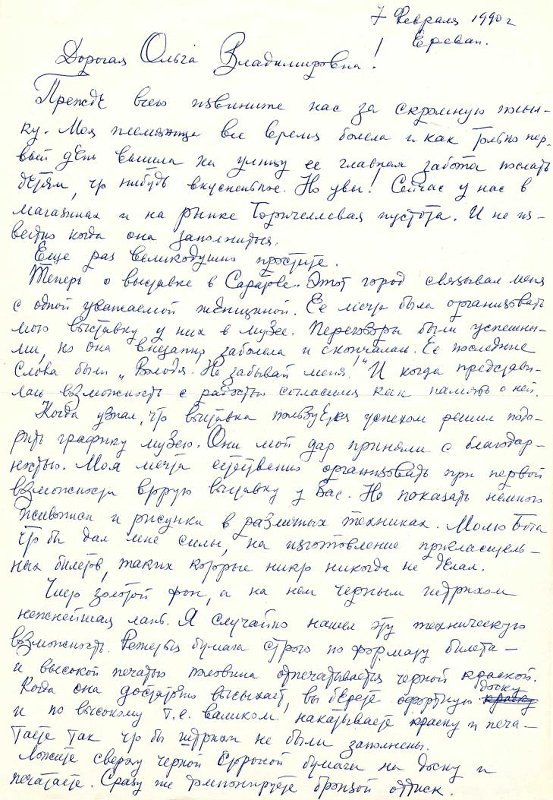 7 Февраля 1990 г
Ереван.
Дорогая Ольга Владимировна!
Прежде всего извините нас за скромную посыл-
ку. Моя племянница все время болела и как только пер-
вый день вышла на улицу ее главная забота послать
детям, что нибудь вкусненькое. Но увы! Сейчас у нас в
магазинах и на рынке Торичеллевая пустота. И не из-
вестно когда она заполнится.
Еще раз великодушно простите.
Теперь о выставке в Саратове. Этот город связывал меня
с одной уважаемой женщиной. Ее мечта была организовать
мою выставку у них в музее. Переговоры были успешны-
ми, но она внезапно заболела и скончалась. Ее последние
слова были „Володя. Не забывай меня!" И когда представи-
лась возможность с радостью согласился как память о ней.
Когда узнал, что выставка пользуется успехом решил пода-
рить графику музею. Они мой дар приняли с благодар-
ностью. Моя мечта естественно организовать при первой
возможности вторую выставку у Вас. Но показать немного
живописи и рисунка в различных техниках. Молю Бога
что бы дал мне силы, на изготовление пригласитель-
ных билетов, таких которые никто никогда не делал.
Чисто золотой фон, а на нем черным штрихом
нежнейшая лань. Я случайно нашел эту техническую
возможность. Режется бумага строго по формату билета –
и высокой печатью половина отпечатывается черной краской.
Когда она достаточно высыхает, вы берете офортную доску
и по высокому т.е. валиком, накатываете краску и печа-
таете так что бы штрихи не были заполнены.
Ложите сверху черной стороной бумаги на доску и
печатаете. Сразу же припорошиваете бронзой оттиск.